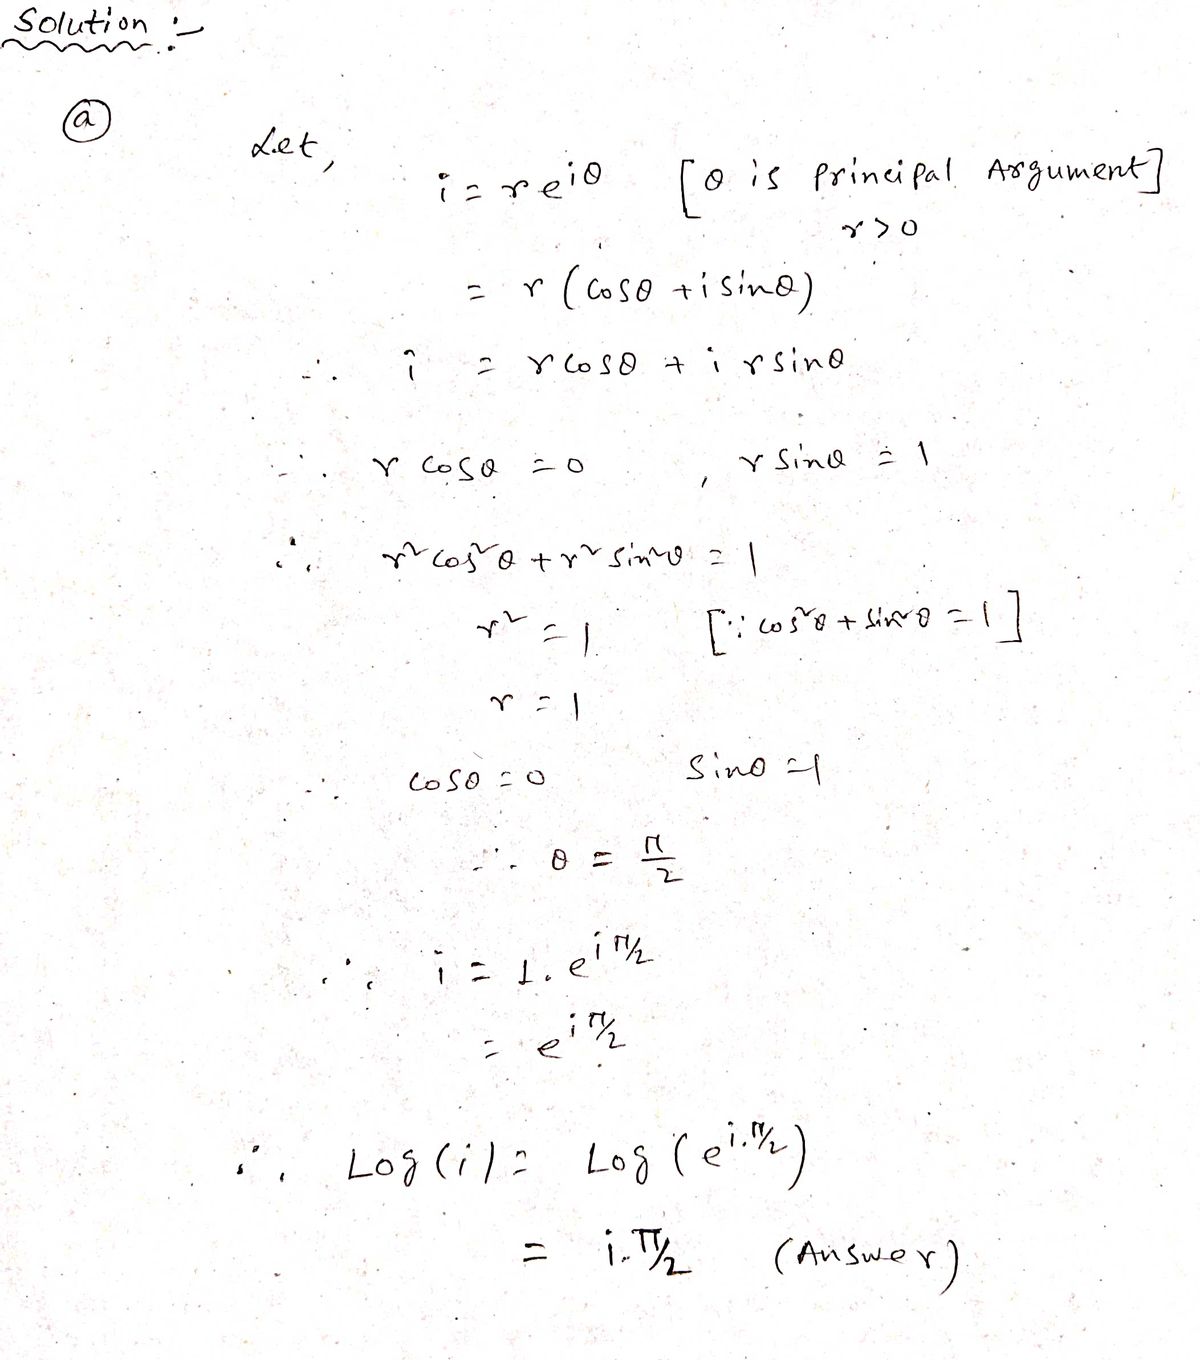 Solution :-
ⓐ
Let,
i = re^{iθ} [θ is principal Argument]
r>0
= r (cosθ + i sinθ)
∴ i = r cosθ + i r sinθ
∴ r cosθ = 0 , r sinθ = 1
∴ r² cos²θ + r² sin²θ = 1
r² = 1 [∵ cos²θ + sin²θ = 1]
r = 1
∴ cosθ = 0 sinθ = 1
∴ θ = π/2
∴ i = 1. e^{iπ/2}
= e^{iπ/2}
∴ Log(i) = Log (e^{i.π/2})
= i.π/2 (Answer)